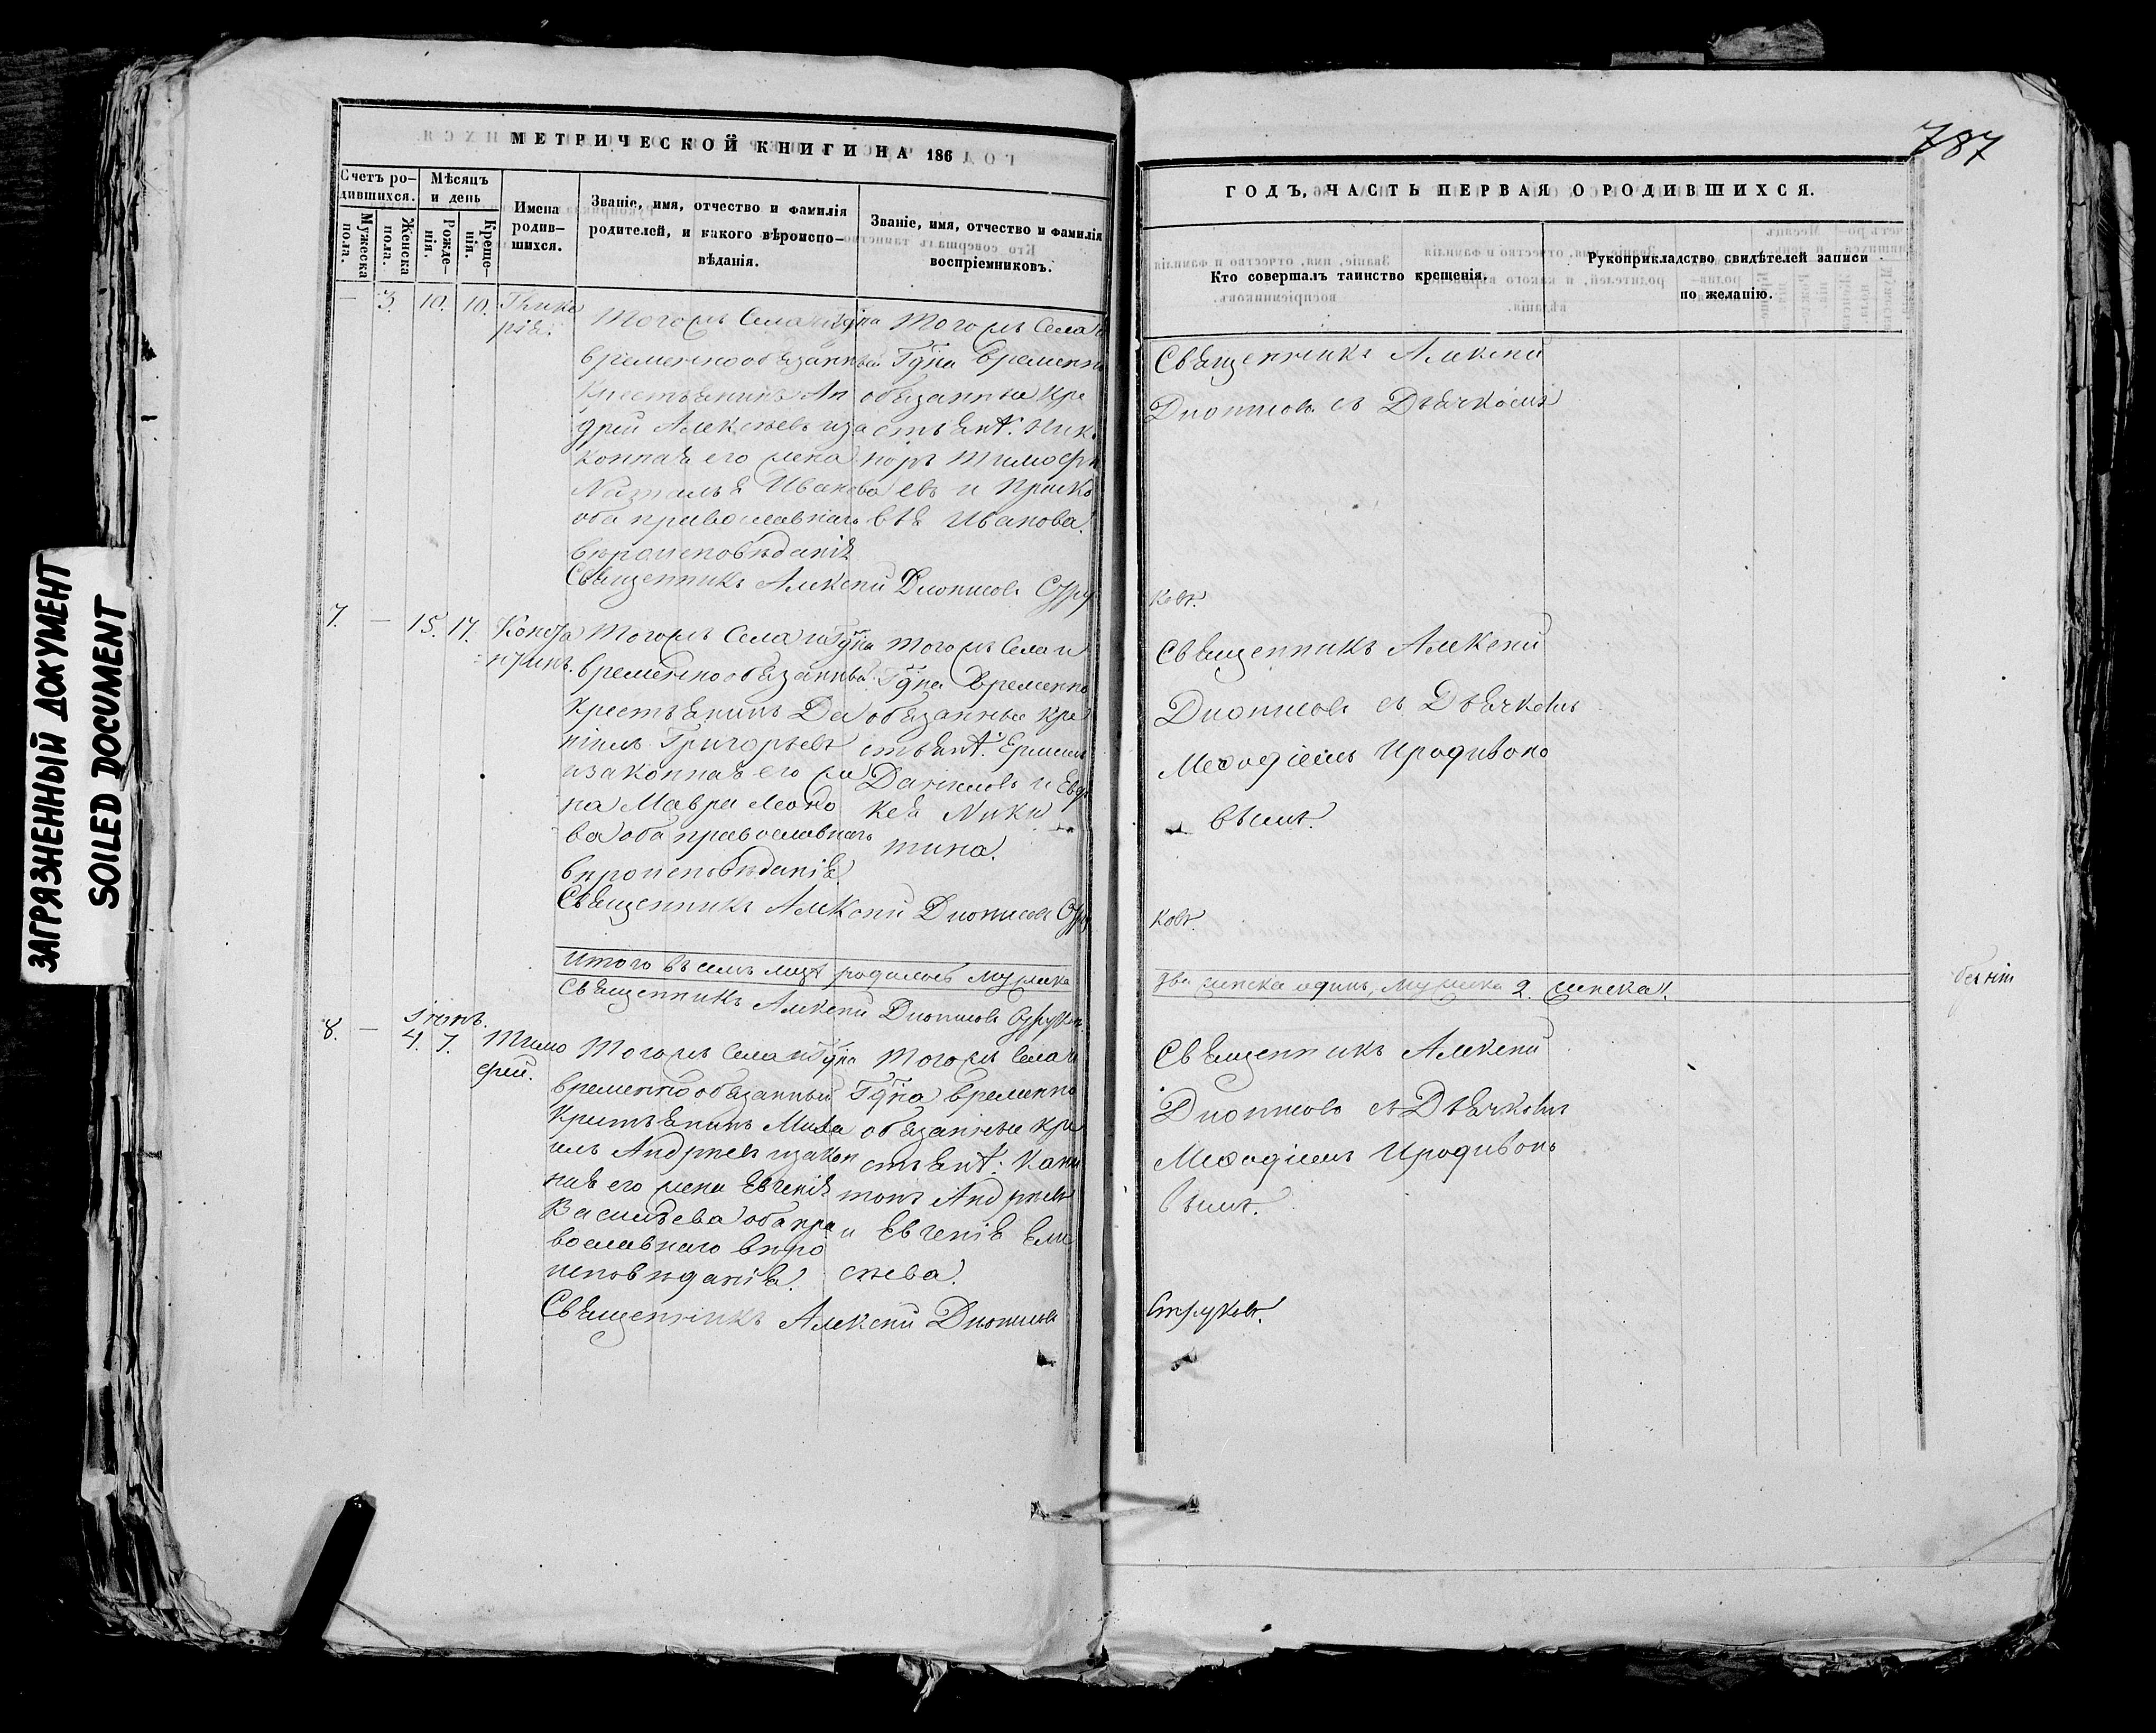 787
МЕТРИЧЕСКОЙ КНИГИ НА 186
ГОДЪ, ЧАСТЬ ПЕРВАЯ О РОДИВШИХСЯ.
Счетъ ро-
дившихся.
Мужеска
пола.
Женска
пола.
Мѣсяцъ
и день
Рожде-
нія.
Креще-
нія.
Имена
родив-
шихся.
Званіе, имя, отчество и фамилія
родителей, и какого вѣроиспо-
вѣданія.
Званіе, имя, отчество и фамилія
воспріемниковъ.
Кто совершалъ таинство крещенія.
Рукоприкладство свидѣтелей записи
по желанію.
— 3 10. 10.
Глике
рія.
Тогожъ Села и Гдна
временнообязанный
Крестьянинъ Ан
дрей Алексѣевъ иза
конная его жена
Наталья Иванова
оба православнаго
вѣроисповѣданія
Тогожъ Села и
Гдна временно
обязанные кре
стьян: Ника
норъ Тимофе
евъ и Праско
вья Иванова.
Священникъ Алексей
Дионисовъ съ Дьячкомъ
Священникъ Алексей Дионисовъ Стру
ковъ.
7. — 15. 17.
Конста
нтинъ.
Тогожъ Села и Гдна
временнообязанный
Крестьянинъ Да
ніилъ Григорьевъ
изаконная его же
на Мавра Леоно
ва оба православнаго
вѣроисповѣданія
Тогожъ Села и
Гдна временно
обязанные кре
стьян:
Даниловъ и Евдо
кея Ники
тина.
Священникъ Алексей
Дионисовъ съ Дьячкомъ
Меѳодіемъ Иродионо
вымъ.
Священникъ Алексей Дионисовъ Стру
ковъ.
Итого въ семъ мцѣ родилось мужеска
два женска одинъ, мужска 2. женска 1.
Священникъ Алексей Дионисовъ Струковъ.
Іюнь.
8. — 4. 7.
Тимо
фей.
Тогожъ Села и Гдна
временнообязанный
Крестьянинъ Миха
илъ Андреевъ изакон
ная его жена Евгенія
Васильева оба пра
вославнаго вѣро
исповѣданія.
Тогожъ Села и
Гдна временно
обязанные кре
стьян: Капи
тонъ Андреевъ
и Евгенія Ели
сѣева.
Священникъ Алексей
Дионисовъ съ Дьячкомъ
Меѳодіемъ Иродионо
вымъ.
Священникъ Алексей Дионисовъ
Струковъ.
ЗАГРЯЗНЕННЫЙ ДОКУМЕНТ
SOILED DOCUMENT